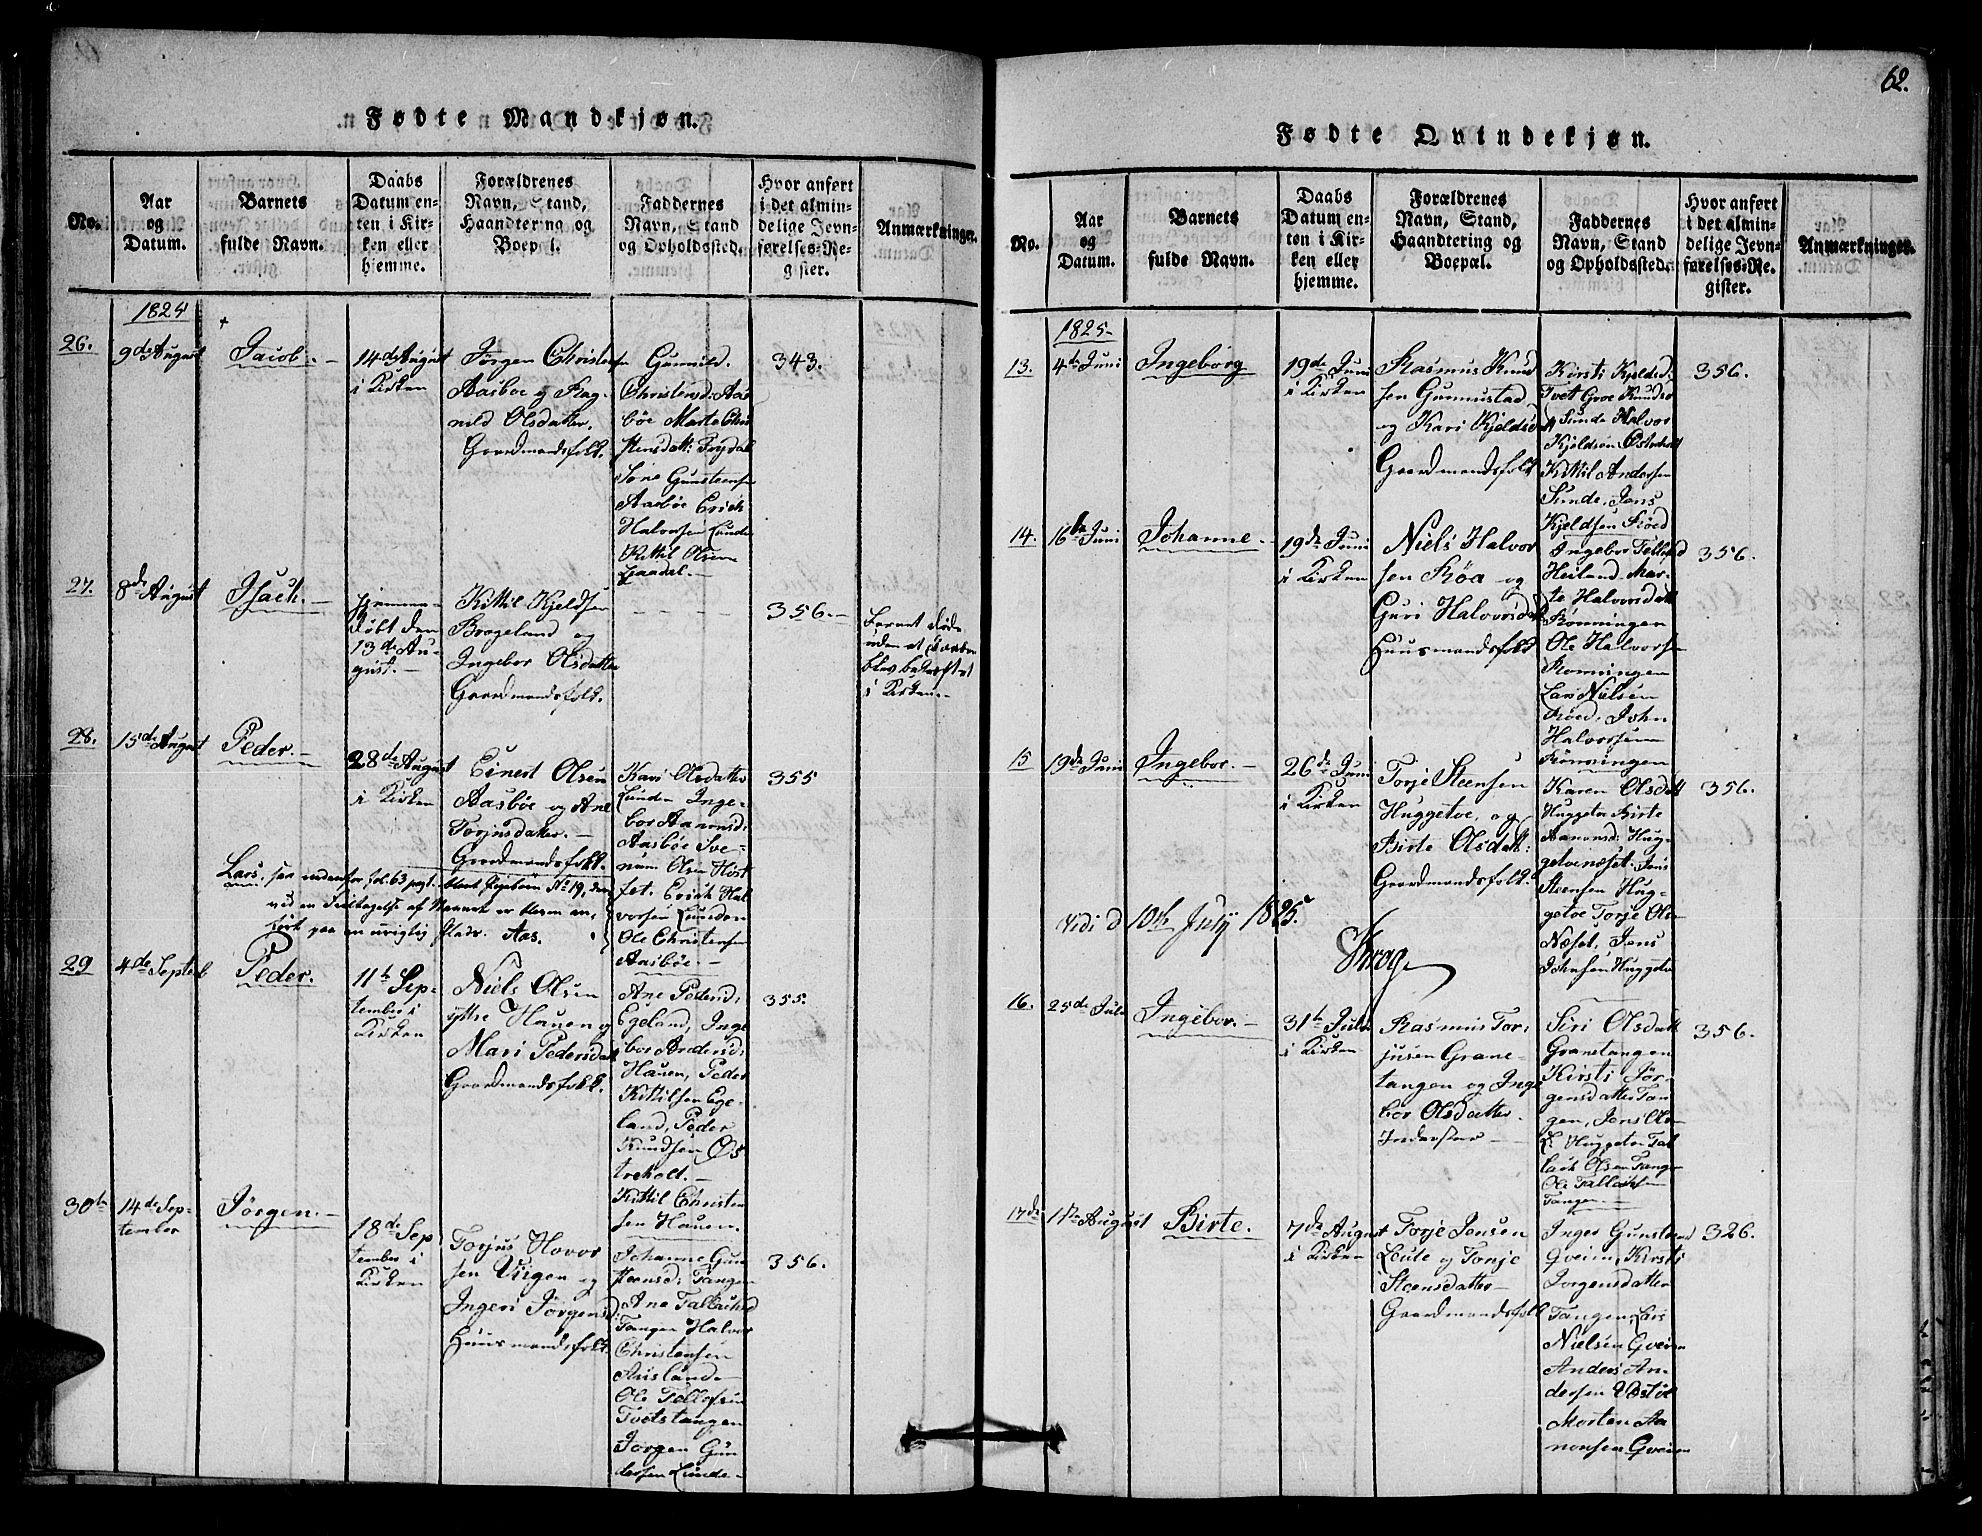 Fødte Mandkjøn.
No.
Aar
og
Datum.
Barnets
fulde Navn.
Daabs
Datum en-
ten i Kir-
ken eller
hjemme.
Forældrenes
Navn, Stand,
Haandtering og
Boepæl.
Faddernes
Navn, Stand
og Opholdssted.
Hvor anført
i det almin-
delige Jevn-
førelses-Re-
gister.
Anmærkninger.
1825
26.
9de August
Jacob. –
14de August
i Kirken
Jørgen Christens
Aasböe og Rag-
nild Olsdatter.
Gaardmandsfolk.
Gunnild
Christensd: Aas
böe Marte Chri
stensdatt:
Aasböe Erich
Halvorsen Lunde
Kittil Olsen
343.
27.
8de August
Isach. –
hjemme-
døbt den
13de Au-
gust. –
Kittil Kjeldsen
Brageland og
Ingebor Olsdatter
Gaardmandsfolk.
356. –
Barnet døde
uden at Daaben
blev bekræftet
i Kirken –
28.
15de August
Peder. –
28de August
i Kirken
Einert Olsen
Aasböe og Ane
Torjusdatter. –
Gaardmandsfolk.
Kari Olsdatter
Lunden Inge-
bor Aanonsd:
Aasböe
Olsen
Erich Hal
vorsen Lunden
Ole Christensen
Aasböe. –
355
Lars, see nedenfor fol. 63
Aas.
29
4de Septeb
Peder.
11te Sep-
tember i
Kirken
Niels Olsen
yttre Hauen og
Mari Pedersdatt
Gaardmandsfolk.
Ane Pedersd:
Egeland, Inge
bor Andersd:
Hauen, Peder
Kittilsen Ege-
land, Peder
Knudsen Øs
treholt. –
Kittil Christen
sen Hauen.
355.
30te
14de Sep-
tember
Jörgen. –
18de Sep
tember i
Kirken
Torjus Hovor
sen Virgen og
Ingeri Jörgensd:
Huusmandsfolk.
Johanne Gun
steensd: Tangen
Ane Tallachsd
Tangen Halvor
Christensen
Auslande
Ole Tellefsen
Tveitstangen
Jörgen Gun
dersen Lunde –
356.
62.
Fødte Qvindekjøn.
No.
Aar
og
Datum.
Barnets
fulde Navn.
Daabs
Datum en-
ten i Kir-
ken eller
hjemme.
Forældrenes
Navn, Stand,
Haandtering og
Boepæl.
Faddernes
Navn, Stand
og Opholdssted.
Hvor anført
i det almin-
delige Jevn-
førelses-Re-
gister.
Anmærkninger.
1825
13.
4de Juni
Ingeborg
19de Juni
i Kirken
Rasmus Knud
sen Gunnustad
og Kari Kjeldsd
Gaardmandsfolk
Kirsti Kjeldsd:
Tvet Groe Knudsd
Sunde Halvor
Kjeldsen Østerholt
Kittil Andersen
Sunde, Jens
Kjeldsen Röed
356.
14.
16de Juni
Johanne –
19de Juni
i Kirken
Niels Halvor
sen Röa og
Guri Halvorsdatt
Huusmandsfolk
Ingebor Tellefsd
Heiland Mar-
te Halvorsdatt
Rönningen
Ole Halvorsen
Rönningen
Lars Nielsen
Röed, John
Halvorsen
Rönningen
356.
15
19de Juni
Ingebor. –
26de Juni
i Kirken
Torje Steensen
Huggetve, og
Birte Olsdatt:
Gaardmandsfolk.
Karen Olsdatt
Huggetve Birte
Aanonsd: Hug-
getvenæset. Jens
Steensen Hug-
getve Torje Ols-
Næset, Jens
Johnsen Huggetve
356.
Vidi d 10th July 1825.
Krog
16.
25de Juli
Ingebor. –
31te Juli
i Kirken
Rasmus Tor-
jusen Grane-
tangen og Inge
bor Olsdatter.
Inderster –
Siri Olsdatt
Granetangen
Kirsti Jör-
gensdatter Tan
gen, Jens Ols-
Huggetve Tal
lach Olsen Tangen
Ole Tallachsen
Tangen –
356.
17de
1te August
Birte.
7de August
i Kirken
Torje Jensen
Leite og Torje
Steensdatter –
Gaardmandsfolk
Inger Gunsteensd
Gveien, Kirsti
Jorgensdatter
Tangen, Lars
Nielsen Gveien
Anders An-
dersen Vestöl
Morten Aa
nonsen Gveien
326.